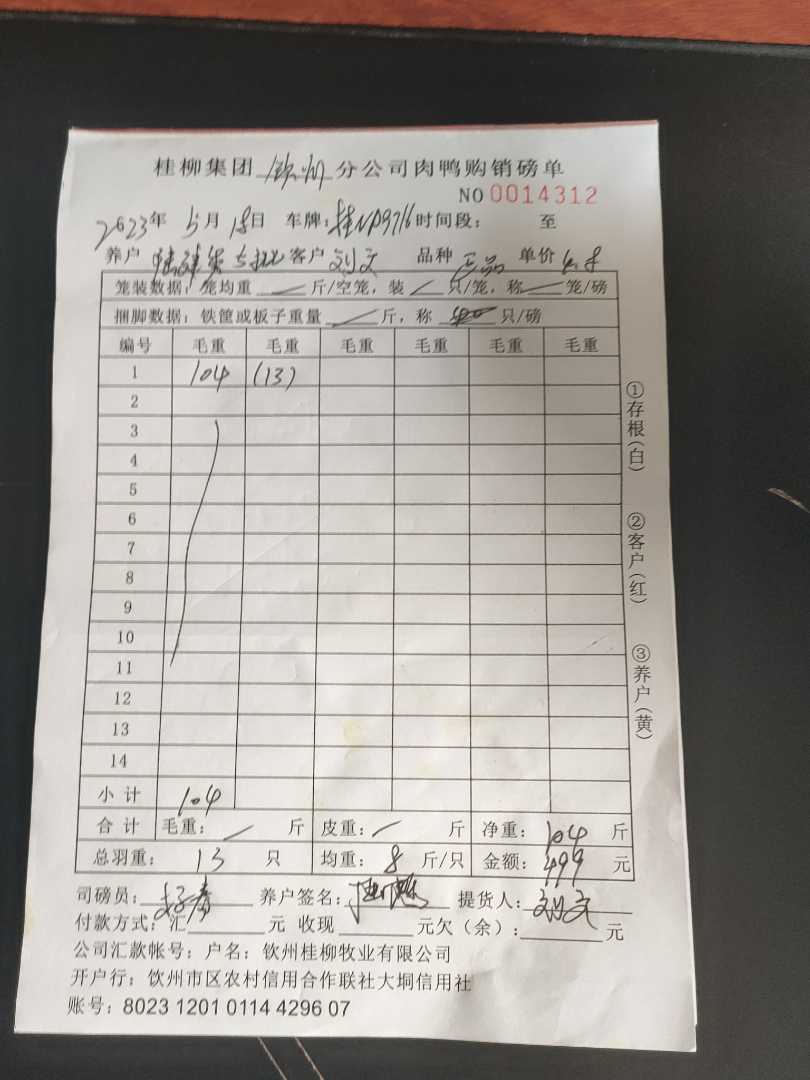 桂柳集团钦州分公司肉鸭购销磅单
NO 0014312
2023年 5月 18日 车牌:桂ND9716 时间段: 至
养户 客户 刘文 品种 正品 单价
笼装数据:笼均重 斤/空笼,装 只/笼,称 笼/磅
捆脚数据:铁筐或板子重量 斤,称 只/磅
编号 毛重 毛重 毛重 毛重 毛重 毛重
1 104 (13)
2
3
4
5
6
7
8
9
10
11
12
13
14
小计 104
合计 毛重: 斤 皮重: 斤 净重: 104 斤
总羽重: 13 只 均重: 8 斤/只 金额: 499 元
司磅员: 养户签名: 提货人: 刘文
付款方式:汇 元 收现 元欠(余): 元
公司汇款帐号:户名:钦州桂柳牧业有限公司
开户行:饮州市区农村信用合作联社大垌信用社
账号:8023 1201 0114 4296 07
①存根(白)
②客户(红)
③养户(黄)